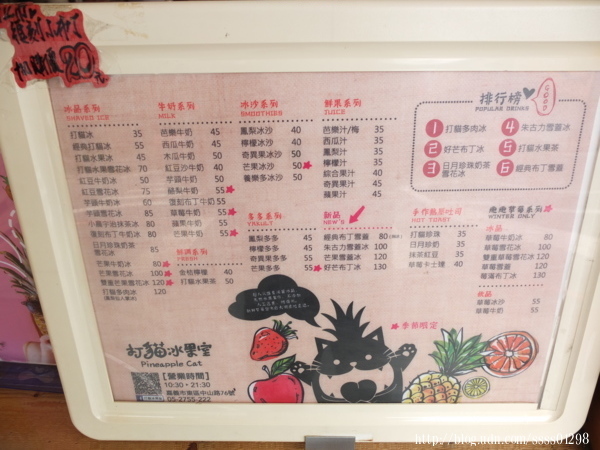 復刻小布丁
加購價20元
冰品系列
SHAVED ICE
打貓冰 35
經典打貓冰 55
打貓水果冰 45
打貓水果雪花冰 70
紅豆牛奶冰 50
紅豆雪花冰 75
芋頭牛奶冰 60
芋頭雪花冰 85
小農宇治抹茶冰 80
復刻布丁牛奶冰 80
日月珍珠奶茶
雪花冰 85
芒果牛奶冰 80
芒果雪花冰 100
雙蛋芒果雪花冰 120
打貓多肉冰 120
牛奶系列
MILK
芭樂牛奶 45
西瓜牛奶 45
木瓜牛奶 50
紅豆沙牛奶 40
芋頭牛奶 50
酪梨牛奶 55
布丁牛奶 55
草莓牛奶 55
蘋果牛奶 55
芒果牛奶 55
杏桔檸檬 40
打貓水果茶 50
冰沙系列
SMOOTHIES
鳳梨冰沙 40
檸檬冰沙 40
奇異果冰沙 50
芒果冰沙 50
養樂多冰沙 50
多多系列
YAKULT
鳳梨多多 45
檸檬多多 45
奇異果多多 55
芒果多多 55
鮮果系列
JUICE
芭樂汁/梅 35
西瓜汁 35
鳳梨汁 35
檸檬汁 35
綜合果汁 40
奇異果汁 45
蘋果汁 45
新品
NEW
經典布丁雪蓋 80
朱古力雪蓋冰 100
芒果雪蓋冰 120
好芒布丁冰 130
排行榜
POPULAR DRINKS
GOOD
1 打貓多肉冰
2 好芒布丁冰
3 日月珍珠奶茶
雪花冰
4 朱古力雪蓋冰
5 打貓水果茶
6 經典布丁雪蓋
手作熱厚吐司
HOT TOREY
打貓珍珠 35
日月珍奶 35
抹茶紅豆 35
草莓卡士達 40
戀戀草莓系列
WINTER ONLY
冰品
草莓牛奶冰 80
草莓雪花冰 100
雙蛋草莓雪花冰 120
草莓雪蓋 120
莓蒲布丁冰 130
飲品
草莓冰沙 55
草莓牛奶 55
季節限定
打貓冰果室
Pineapple Cat
【營業時間】
10:30 - 21:30
嘉義市東區中山路76號
05-2755-222
http://blog.udn.com/ssss01298